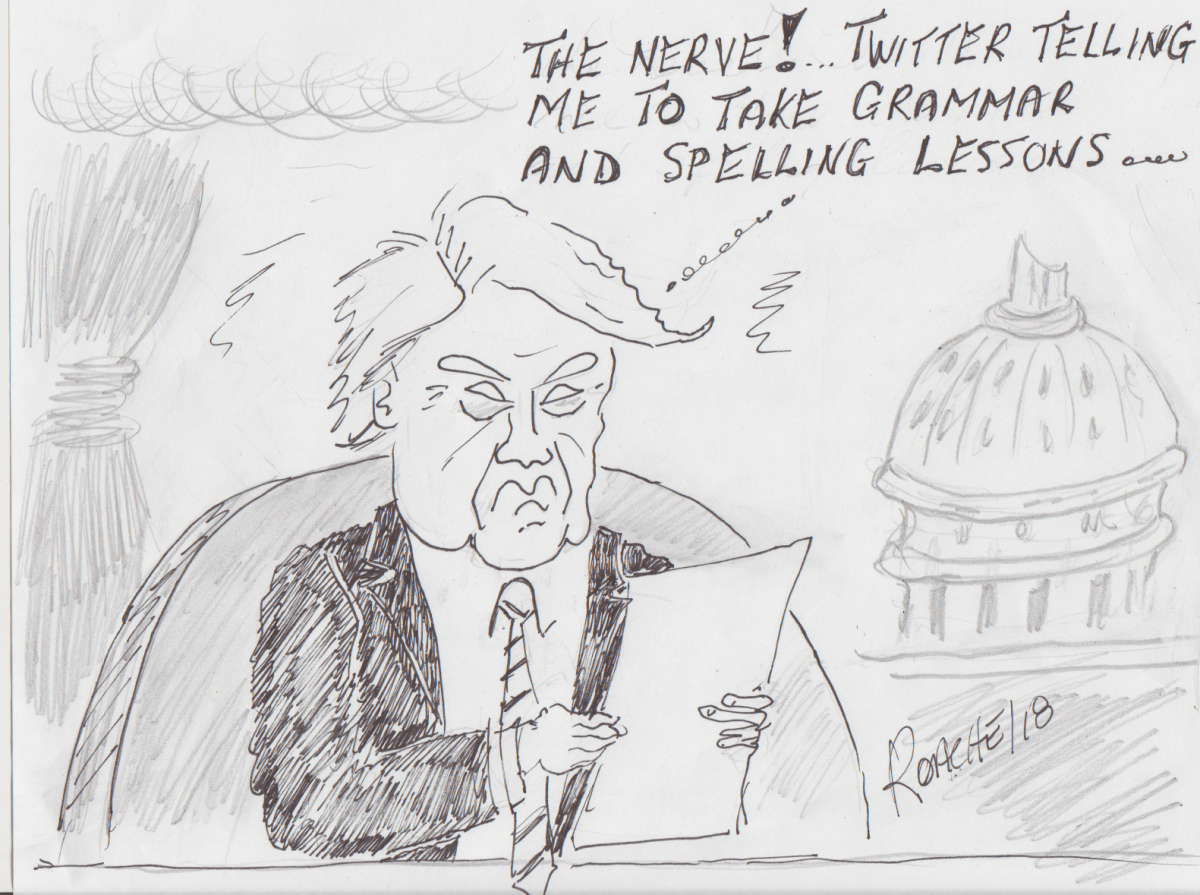 THE NERVE!... TWITTER TELLING
ME TO TAKE GRAMMAR
AND SPELLING LESSONS....
ROACHE/18